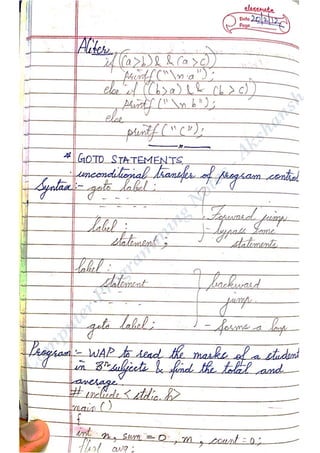 elegante
Date
Page
Aliter
if ((a>b) & & (a>c))
printf ("\n a");
else if ((b>a) & & (b>c))
printf ("\n b");
else
printf ("c");
* GOTO STATEMENTS
unconditional transfer of program control
Syntax:- goto label :
- - - - -
Forward jump
label ; - bypass some
statement ; statements
label :
statement backward
- - - - jump
goto label ; - forms a loop
Program:- WAP to read the marks of a student
in 8th subjects & find the total and
average.
# include < stdio.h>
main ()
{
int n, sum = 0, m, count = 0;
float avg;